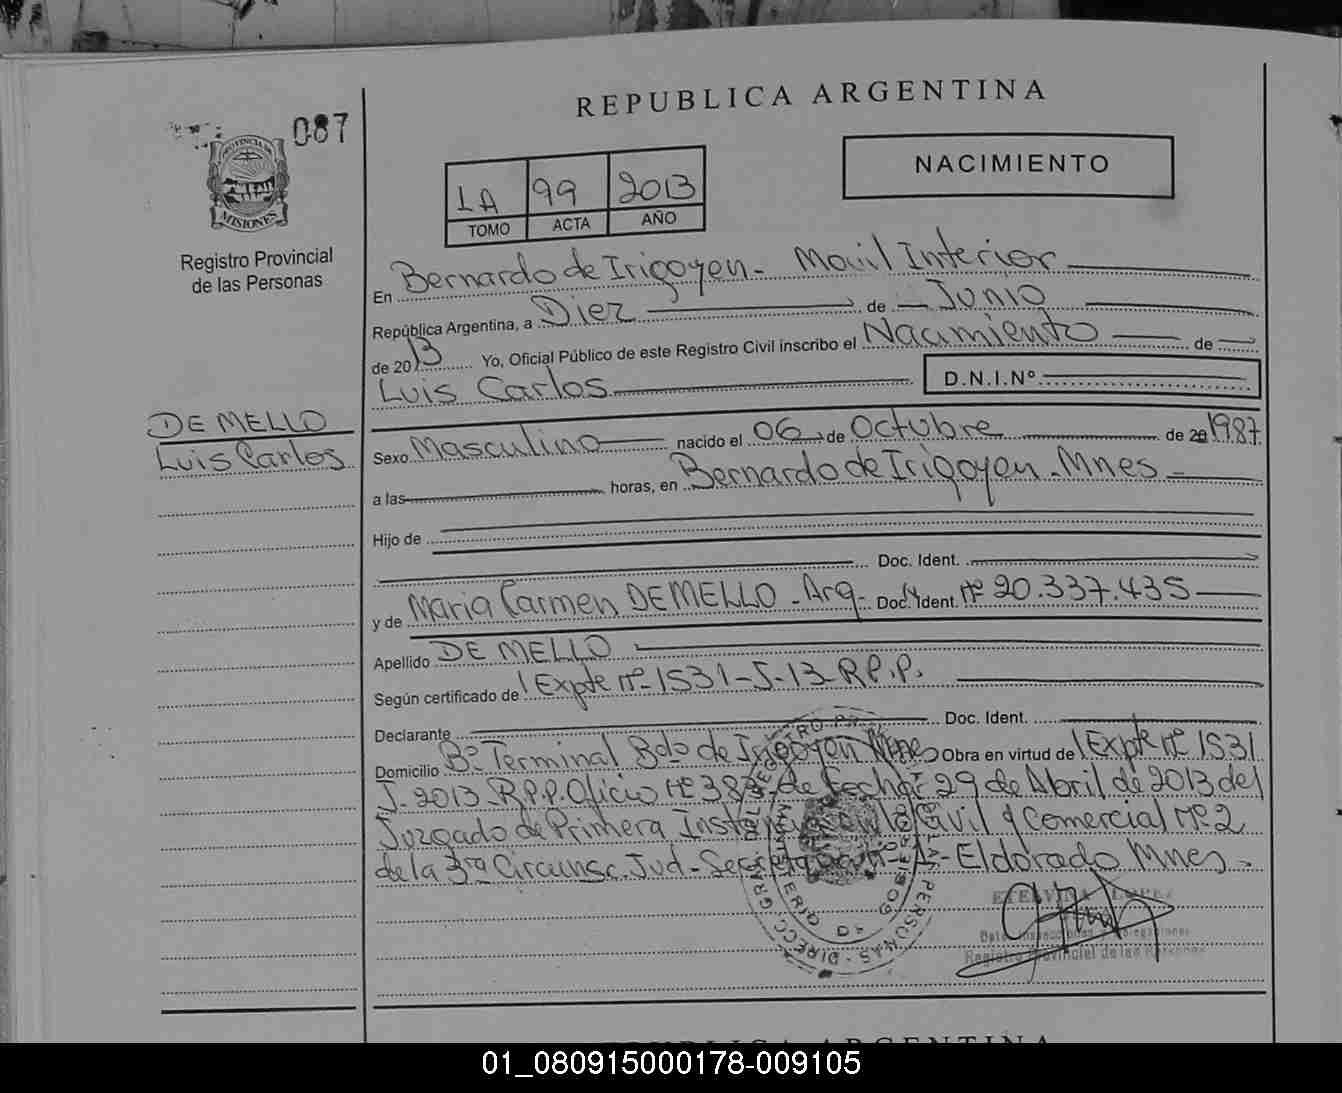 REPUBLICA ARGENTINA
087
PROVINCIA DE
MISIONES
Registro Provincial
de las Personas
NACIMIENTO
LA 99 2013
TOMO ACTA AÑO
En Bernardo de Irigoyen - Movil Interior
República Argentina, a Diez de Junio
de 2013 Yo, Oficial Público de este Registro Civil inscribo el Nacimiento de
Luis Carlos D.N.I.Nº
DE MELLO
Luis Carlos
Sexo Masculino nacido el 06 de Octubre de 20 1987
a las horas, en Bernardo de Irigoyen - Mnes
Hijo de
Doc. Ident.
y de Maria Carmen DE MELLO - Arg - Doc. Ident. Nº 20.337.435
Apellido DE MELLO
Según certificado de Expte nº 1531-J-13-R.P.P.
Declarante Doc. Ident.
Domicilio Bº Terminal Bdo de Irigoyen Mnes Obra en virtud de Expte nº 1531
J-2013-R.P.P. Oficio Nº de Fecha: 29 de Abril de 2013 del
Juzgado de Primera Instancia Civil y Comercial Nº 2
de la 3ra Circunsc. Jud - Eldorado Mnes -
ETELVINA LOPEZ
Registro Provincial de las Personas
REPUBLICA ARGENTINA
01_080915000178-009105